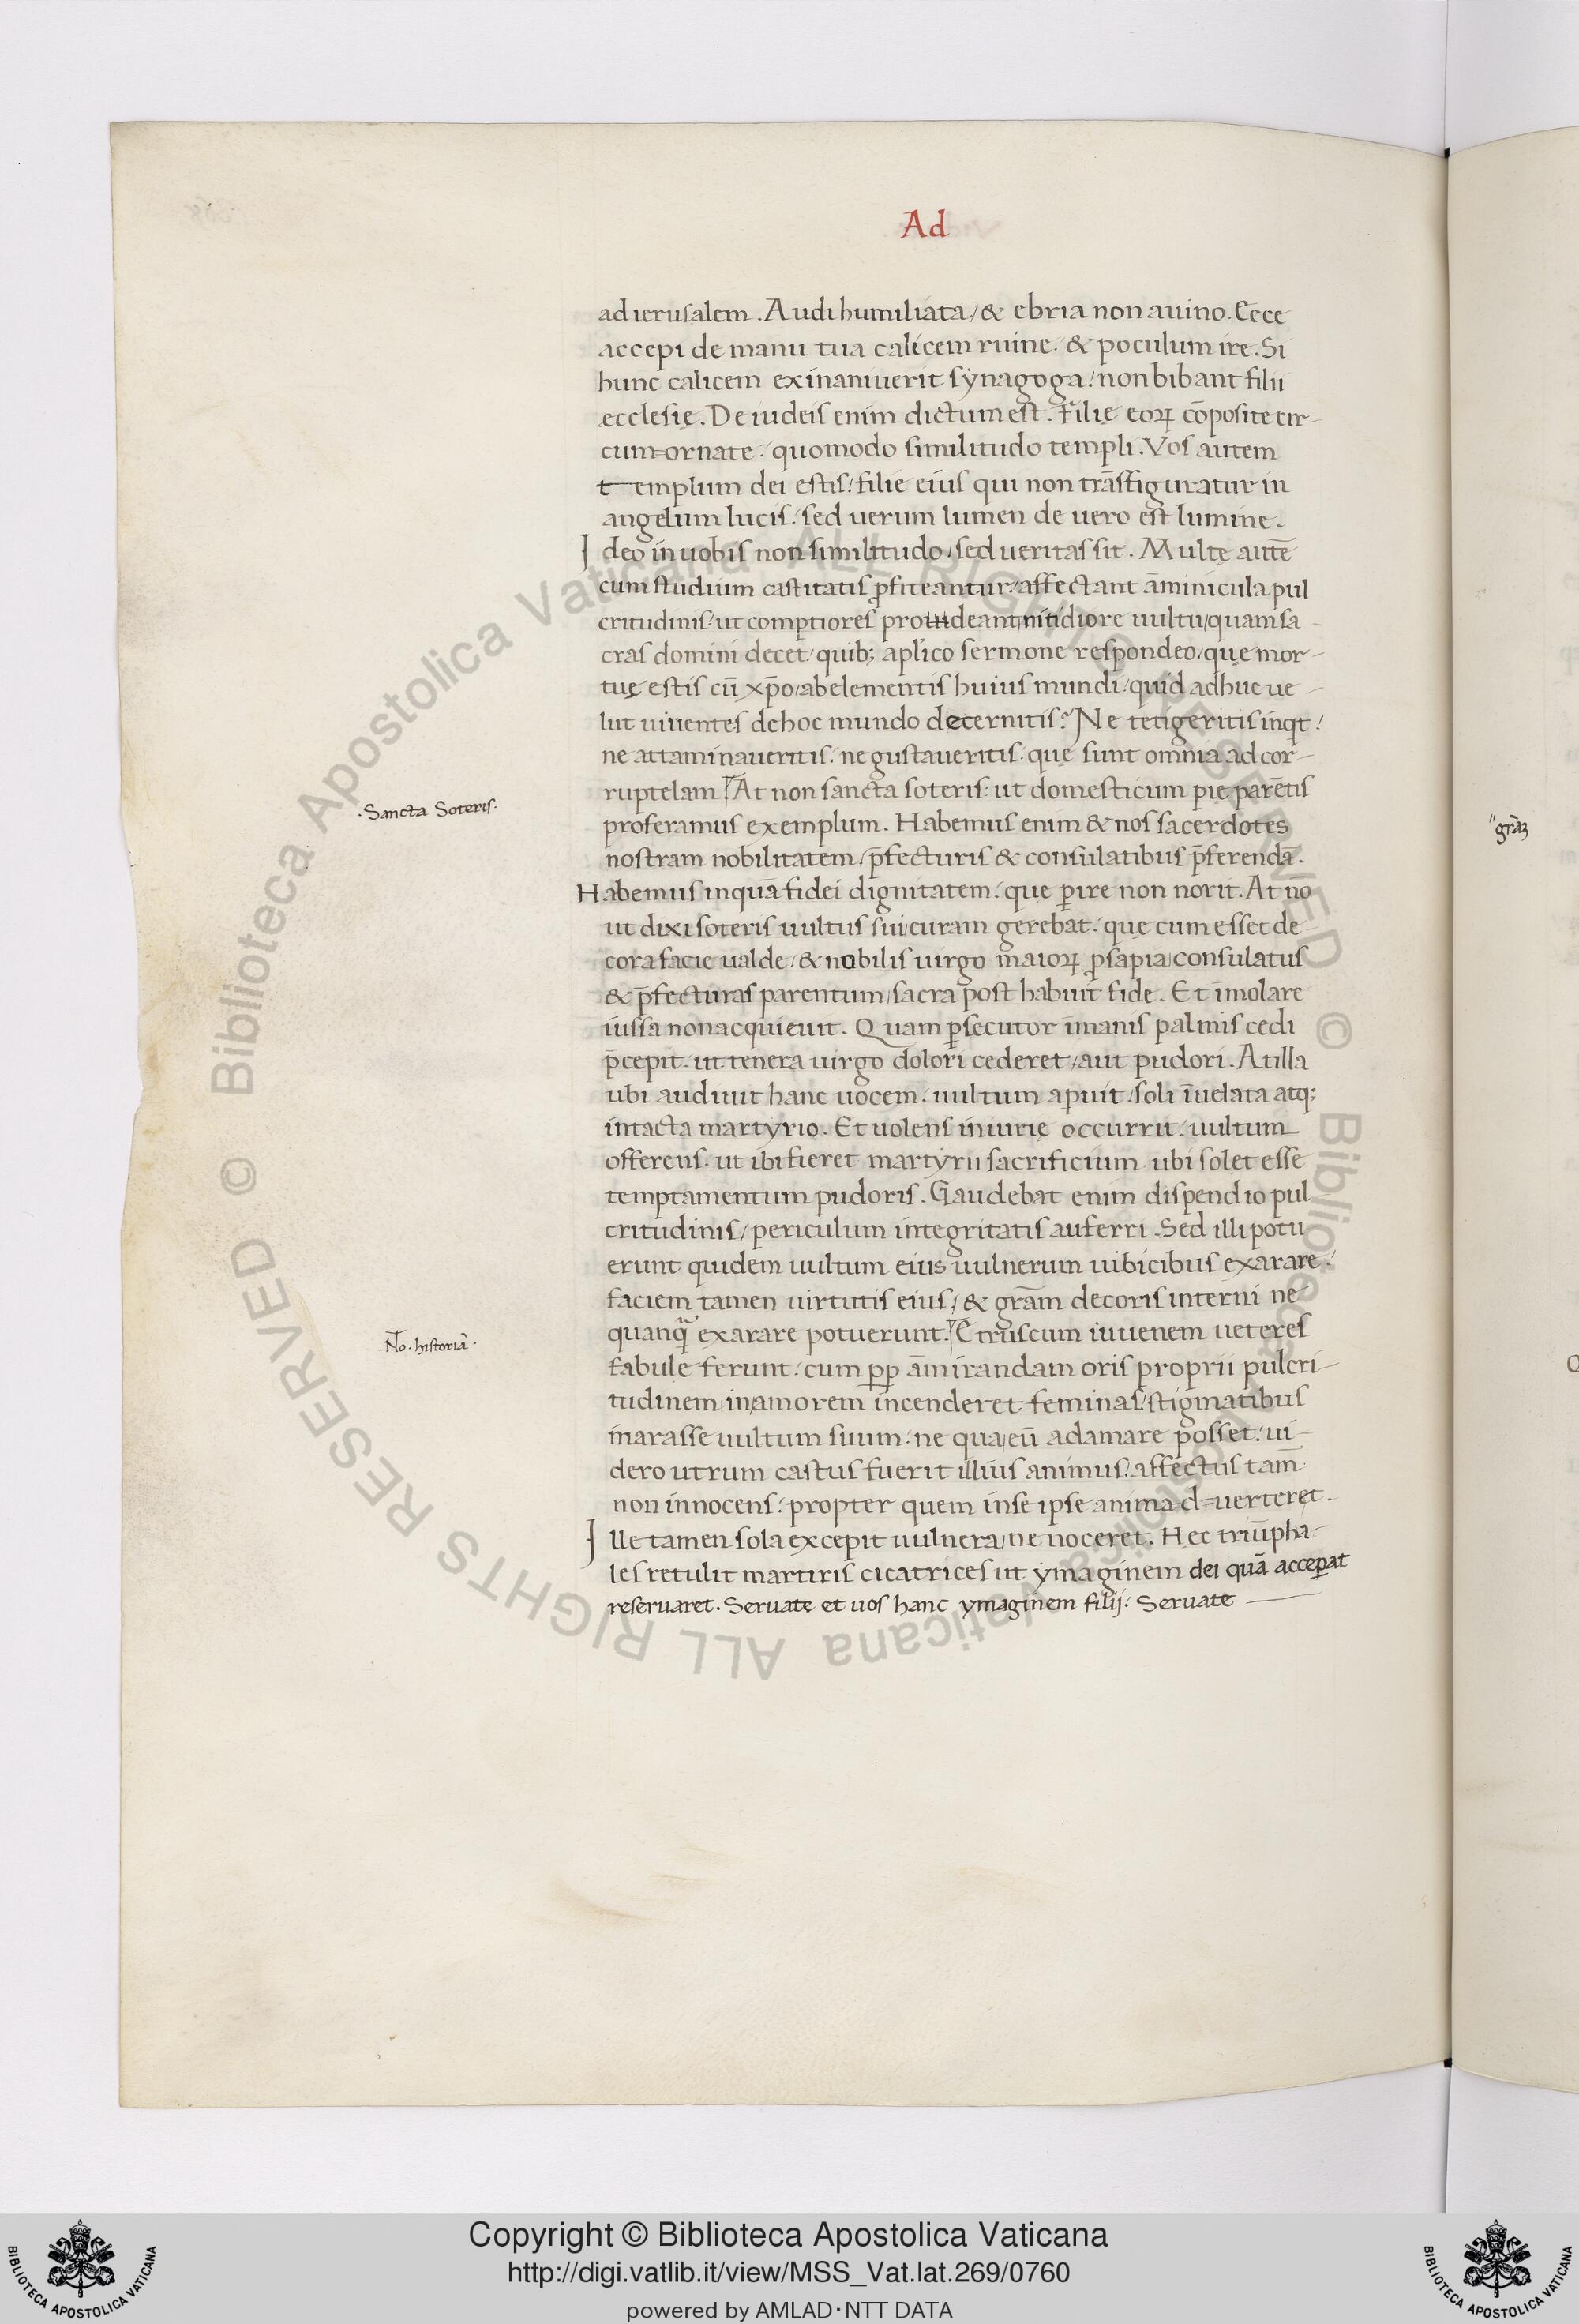 Ad
ad ierusalem. Audi humiliata / & ebria non a uino. Ecce
accepi de manu tua calicem ruine. & poculum ire. Si
hunc calicem exinaniuerit synagoga / non bibant filii
ecclesię. De iudeis enim dictum est. Filię eoꝝ cōposite cir-
cum=ornate / quomodo similitudo templi. Vos autem
templum dei estis / filie eius qui non trāsfiguratur in
angelum lucis / sed uerum lumen de uero est lumine.
Ideo in uobis non similitudo / sed ueritas sit. Multę autē
cum studium castitatis ꝓfiteantur / affectant āminicula pul
critudinis / ut comptiores prodeant / nitidiore uultu / quam sa-
cras domini decet / quibꝫ aplico sermone respondeo / que mor-
tuę estis cū xp̄o / ab elementis huius mundi / quid adhuc ue-
lut uiuentes de hoc mundo decernitis? Ne tetigeritis inqt /
ne attaminaueritis. ne gustaueritis. quę sunt omnia ad cor-
ruptelam. At non sancta soteris: ut domesticum pię parētis
.Sancta Soteris.
proferamus exemplum. Habemus enim & nos sacerdotes
nostram nobilitatem / p̄fecturis & consulatibus p̄ferendā.
Habemus inquā fidei dignitatem / que ꝑire non norit. At nō
ut dixi soteris uultus sui curam gerebat. quę cum esset de-
cora facie ualde / & nobilis uirgo maioꝝ ꝓsapia / consulatus
& p̄fecturas parentum / sacra post habuit fide. Et īmolare
iussa non acquieuit. Quam ꝑsecutor īmanis palmis cedi
p̄cepit. ut tenera uirgo dolori cederet / aut pudori. At illa
ubi audiuit hanc uocem. uultum aꝑuit / soli īuelata atqꝫ
intacta martyrio. Et uolens iniurię occurrit / uultum
offerens. ut ibi fieret martyrii sacrificium ubi solet esse
temptamentum pudoris. Gaudebat enim dispendio pul
critudinis / periculum integritatis auferri. Sed illi potu
erunt quidem uultum eius uulnerum uibicibus exarare /
faciem tamen uirtutis eius / & grām decoris interni ne
quanq̄ exarare potuerunt. Etruscum iuuenem ueteres
.No. historiā.
fabule ferunt / cum ꝓp āmirandam oris proprii pulcri-
tudinem / in amorem incenderet feminas / stigmatibus
inarasse uultum suum / ne qua eū adamare posset / ui-
dero utrum castus fuerit illius animus / affectus tam̄
non innocens / propter quem in se ipse anima=d=uerteret.
Ille tamen sola excepit uulnera / ne noceret. Hec triūpha-
les retulit martiris cicatrices ut ymaginem dei quā acceꝑat
reseruaret. Seruate et uos hanc ymaginem filij: Seruate
"grāꝫ
© Biblioteca Apostolica Vaticana ALL RIGHTS RESERVED © Biblioteca Apostolica Vaticana ALL RIGHTS RESERVED
Copyright © Biblioteca Apostolica Vaticana
http://digi.vatlib.it/view/MSS_Vat.lat.269/0760
powered by AMLAD·NTT DATA
BIBLIOTECA APOSTOLICA VATICANA
BIBLIOTECA APOSTOLICA VATICANA